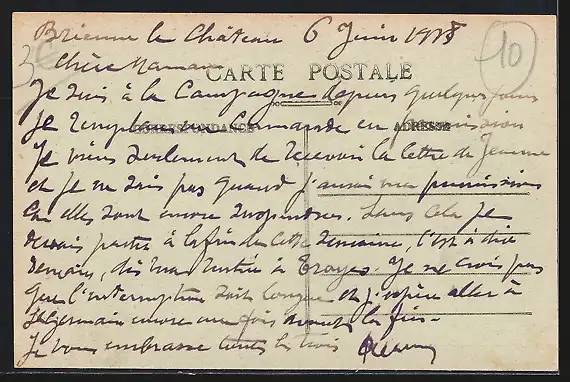 Brienne le Château 6 Juin 1918
10
Chère Maman
CARTE POSTALE
Je suis à la Campagne depuis quelques jours
Je remplace un Camarade en permission
CORRESPONDANCE
ADRESSE
Je viens seulement de recevoir la lettre de Jeanne
et je ne sais pas quand j'aurai ma permission
Car elles sont encore suspendues. Sans cela je
devais partir à la fin de cette semaine, c'est à dire
demain, dès ma rentrée à Troyes. Je ne crois pas
que l'interruption soit longue et j'espère aller à
St Germain encore une fois avant la fin.
Je vous embrasse toutes les trois